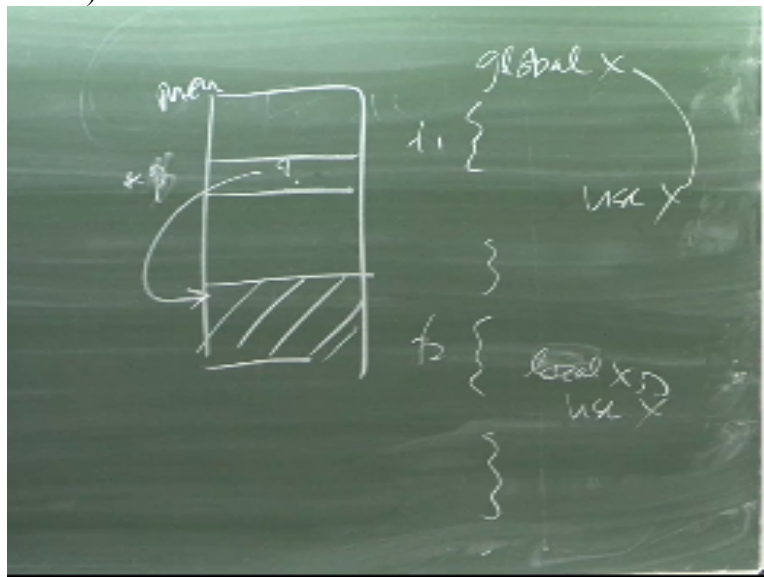 mem
*
global x
f1 {
use x
}
f2 {
local x
use x
}